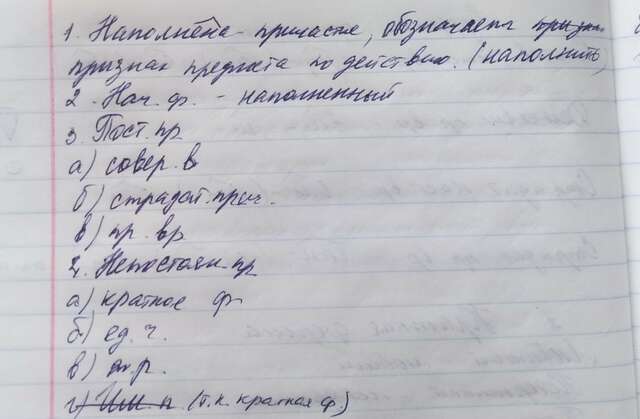 1. Наполнена - причастие, обозначает
признак предмета по действию. (наполнить)
2. Нач. ф. - наполненный
3 Пост. пр
а) совер. в
б) страдат. прич.
в) пр. вр
4. Непостоян. пр
а) краткое ф
б) ед. ч.
в) ж. р.
г) Им. п (т.к. краткая ф)